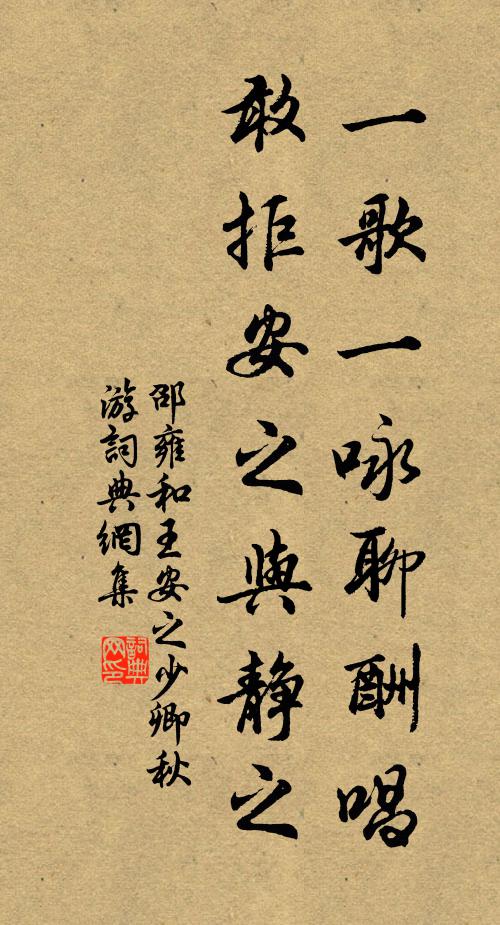 一歌一咏聊酬唱
敢拒安之與静之
邵雍和王安之少卿秋
游詞典網集
詞典
网印